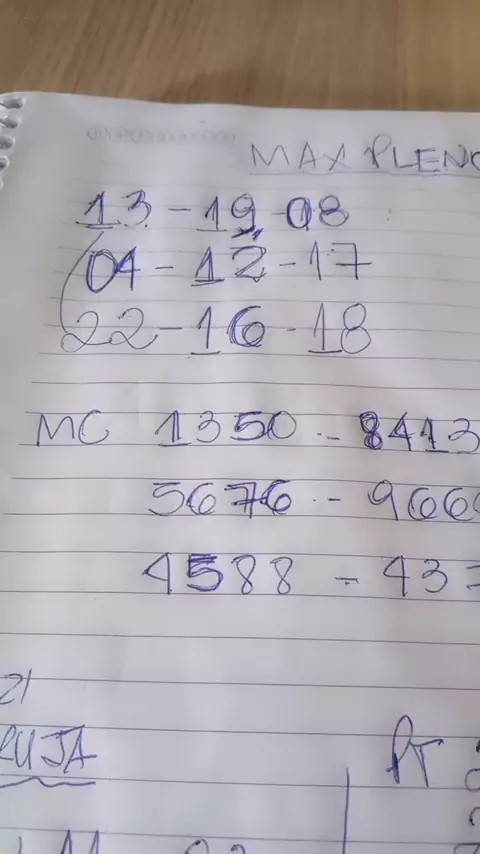 MAX PLENO
13-19-08
04-12-17
22-16-18
MC 1350 - 8413
5676 - 966
4588 - 437
21
RUJA
PT